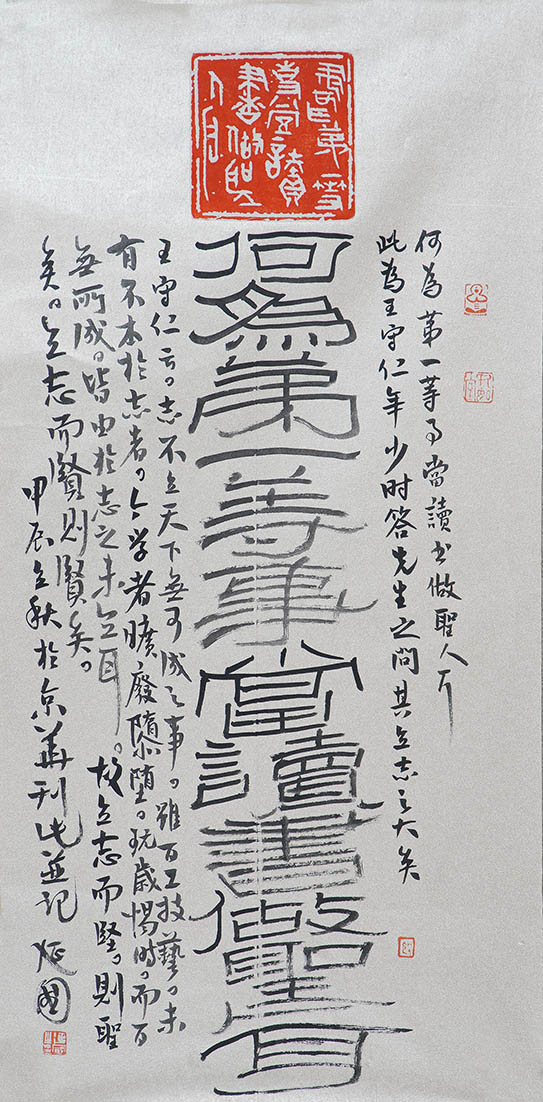 何為第一等事當讀書做聖人耳
此為王守仁年少时答先生之問其立志之大矣
何為第一等事當讀書做聖人耳
王守仁云。志不立天下無可成之事。雖百工技藝。未
有不本於志者。今学者曠廢隳堕。玩歲愒时。而百
無所成。皆由於志之未立耳。故立志而聖。則聖
矣。立志而賢則賢矣。
甲辰立秋於京華刊此並記